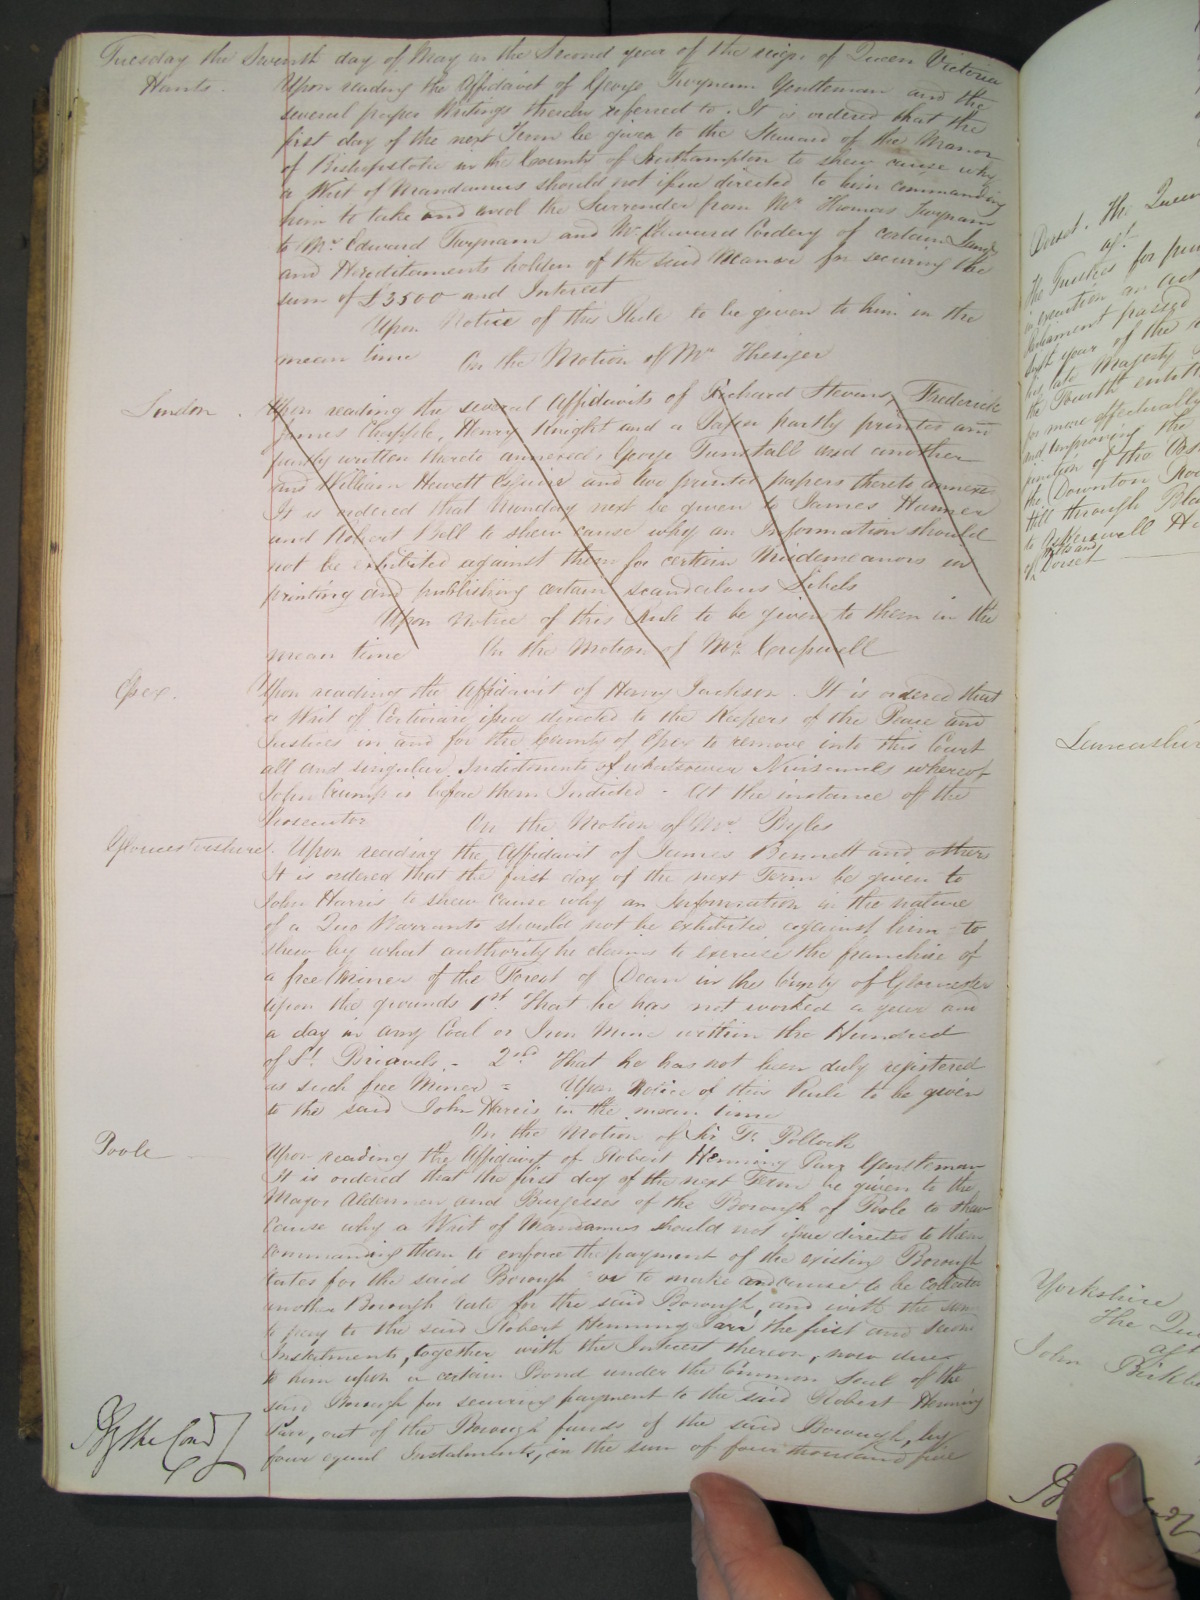 Tuesday the Seventh day of May in the Second year of the reign of Queen Victoria
Hants. Upon reading the Affidavit of George Twynam Gentleman and the
several paper Writings thereto referred to. It is ordered that the
first day of the next Term be given to the Steward of the Manor
of Bishopstoke in the County of Southampton to shew cause why
a Writ of Mandamus should not issue directed to him commanding
him to take and the Surrender from Mr. Thomas Twynam
to Mr. Edward Twynam and Mr. Edward Cordery of certain Lands
and Hereditaments holden of the said Manor for securing the
sum of £3500 and Interest
Upon Notice of this Rule to be given to him in the
mean time On the Motion of Mr. Thesiger
London. Upon reading the several Affidavits of Richard Stevens, Frederick
James Chapple, Henry Knight and a Paper partly printed and
partly written thereto annexed, George Tunstall and another
and William Hewett Esquire and two printed papers thereto annexed
It is ordered that Monday next be given to James Harmer
and Robert Bell to shew cause why an Information should
not be exhibited against them for certain Misdemeanors in
printing and publishing certain scandalous Libels
Upon Notice of this Rule to be given to them in the
mean time On the Motion of Mr. Cresswell
Essex. Upon reading the Affidavit of Henry Jackson. It is ordered that
a Writ of Certiorari issue directed to the Keepers of the Peace and
Justices in and for the County of Essex to remove into this Court
all and singular Indictments of whatsoever Nuisances whereof
John Crump is before them Indicted - At the instance of the
Prosecutor On the Motion of Mr. Byles
Gloucestershire. Upon reading the Affidavit of James Bennett and others
It is ordered that the first day of the next Term be given to
John Harris to shew cause why an Information in the nature
of a Quo Warranto should not be exhibited against him to
shew by what authority he claims to exercise the franchise of
a free Miner of the Forest of Dean in the County of Gloucester
upon the grounds 1st. That he has not worked a year and
a day in any Coal or Iron Mine within the Hundred
of St. Briavels. - 2nd. That he has not been duly registered
as such free Miner = Upon Notice of this Rule to be given
to the said John Harris in the mean time
On the Motion of Sir F. Pollock
Poole Upon reading the Affidavit of Robert Henning Parr Gentleman
It is ordered that the first day of the next Term be given to the
Mayor Aldermen and Burgesses of the Borough of Poole to shew
cause why a Writ of Mandamus should not issue directed to them
commanding them to enforce the payment of the existing Borough
rates for the said Borough or to make and cause to be collected
another Borough rate for the said Borough, and with the same
to pay to the said Robert Henning Parr the first and second
Instalments, together with the Interest thereon, now due
to him upon a certain Bond under the Common Seal of the
said Borough for securing payment to the said Robert Henning
Parr, out of the Borough funds of the said Borough, by
four equal Instalments, in the sum of four thousand five
By the Court
Dorset. The Queen
agt.
The Trustees for
in execution an act
Parliament passed
last year of the
his late Majesty
the Fourth
for more effectually
and improving the
of the
the Downton
Hill through
to
of Dorset
Lancashire
Yorkshire
The Queen
agt
John